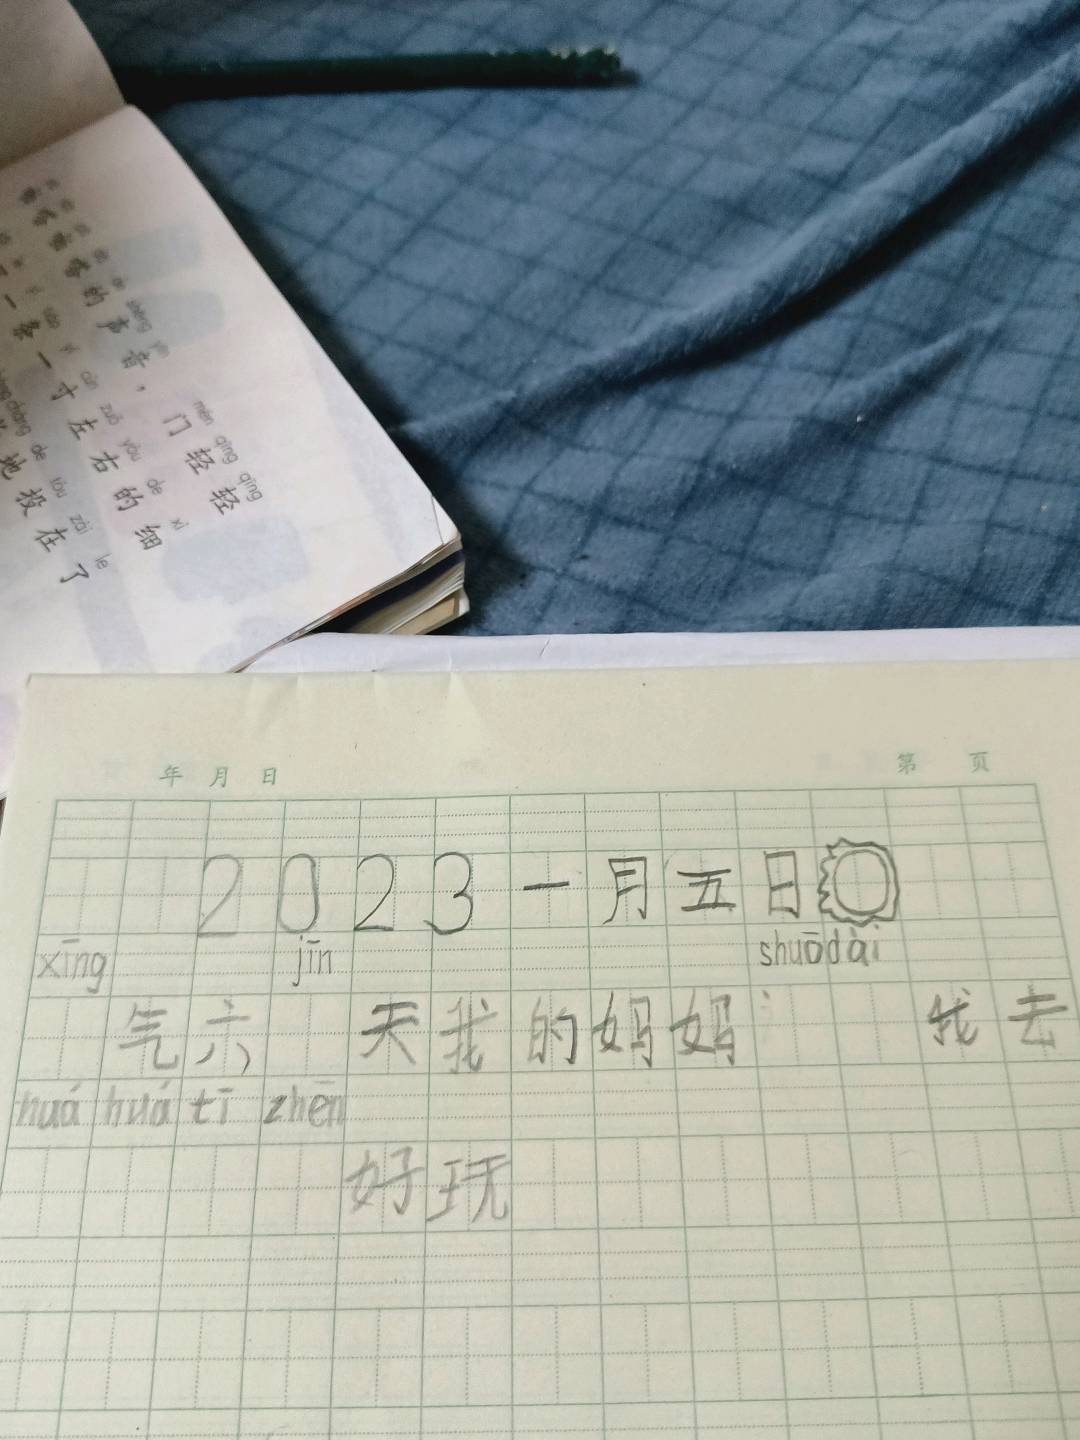 的声音，门轻轻
mén qīng qīng
一条一寸左右的细
zuǒ yòu de xì
地投在了
de tóu zài le
年 月 日 第 页
2023一月五日
xīng jīn shuōdài
气六 天我的妈妈 我去
huá huá tī zhēn
好玩